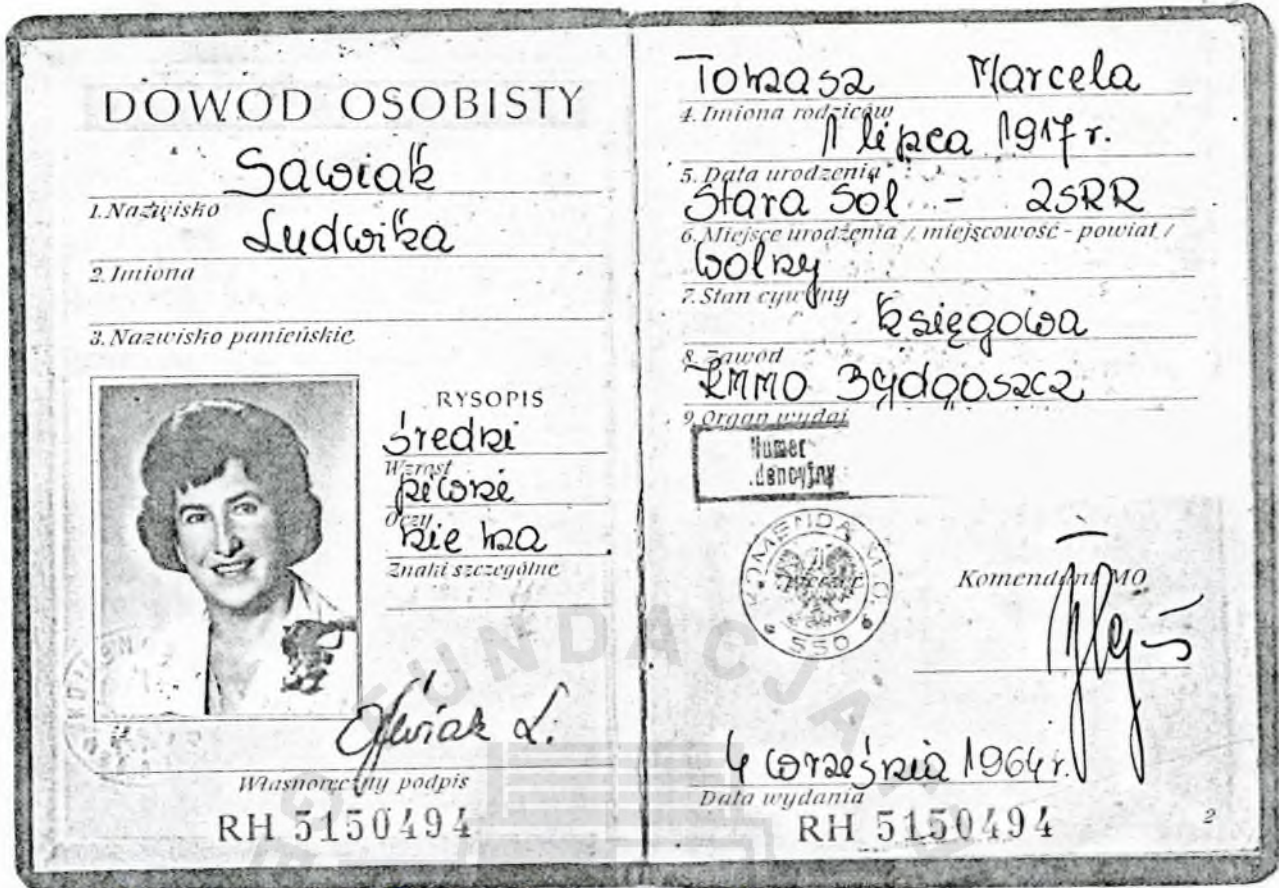 DOWÓD OSOBISTY
Sawiak
1. Nazwisko
Ludwika
2. Imiona
3. Nazwisko panieńskie
RYSOPIS
średni
Wzrost
piwne
Oczy
nie ma
Znaki szczególne
Sawiak L.
Własnoręczny podpis
RH 5150494
Tomasz Marcela
4. Imiona rodziców
1 lipca 1917 r.
5. Data urodzenia
Stara Sól - ZSRR
6. Miejsce urodzenia / miejscowość - powiat /
wolny
7. Stan cywilny
księgowa
8. Zawód
KMMO Bydgoszcz
9. Organ wydaj
Numer
.dencyjny
KOMENDA M.O.
Komendant MO
4 września 1964 r.
Data wydania
RH 5150494
2
FUNDACJA